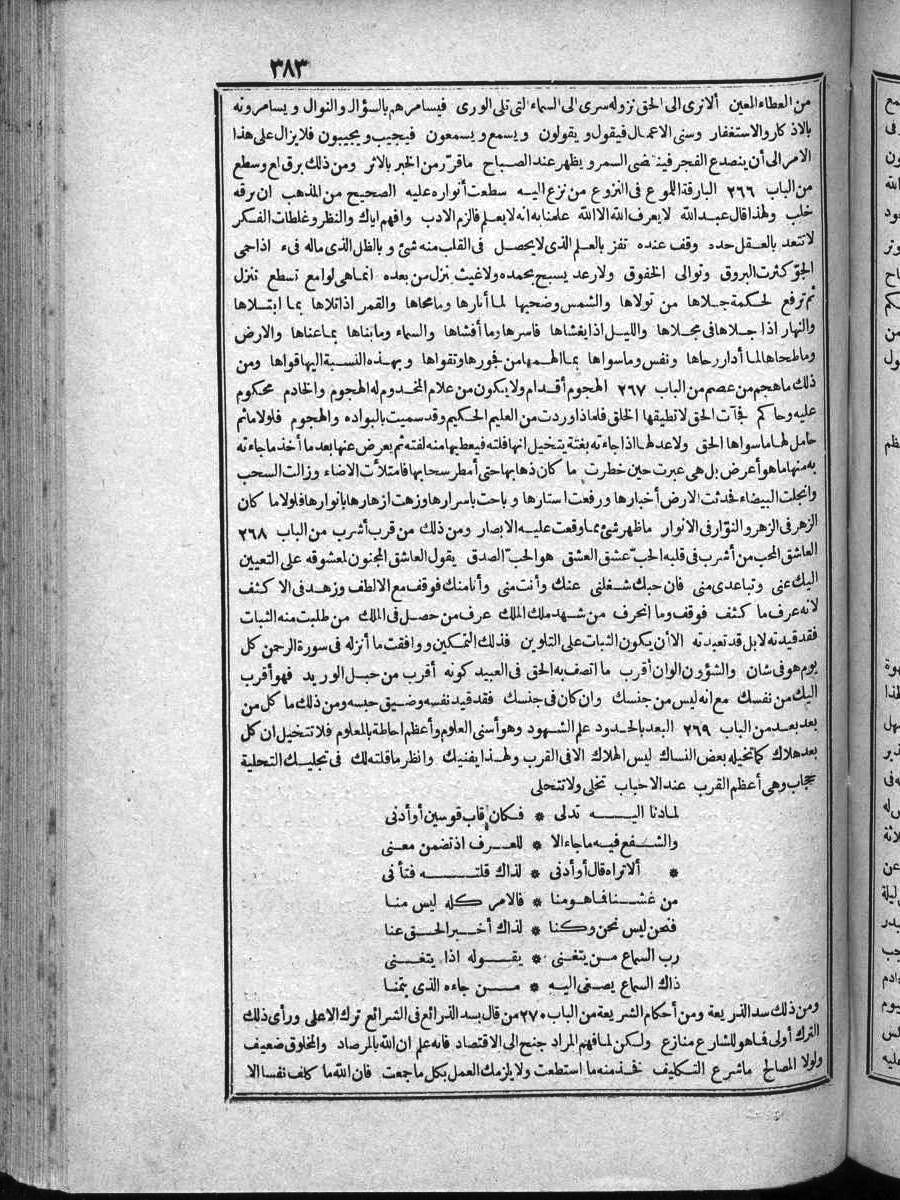 ٣٨٣
من العطاء المعين ألا ترى الى الحق نزوله سرى الى السماء التى تلى الورى فيسامرهم بالسؤال والنوال ويسامرونه
بالاذكار والاستغفار وسنى الاعمال فيقول ويقولون ويسمع ويسمعون فيجيب ويجيبون فلا يزال على هذا
الامر الى أن ينصدع الفجر فينقضى السمر ويظهر عند الصباح ماقرّر من الخبر بالاثر ومن ذلك برق لع وسطع
من الباب ٢٦٦ البارقة اللموع فى النزوع من نزع اليه سطعت أنواره عليه الصحيح من المذهب ان برقه
خلب ولهذا قال عبد الله لا يعرف الله الا الله علمنا به انه لا يعلم فالزم الادب وافهم اياك والنظر وغلطات الفكر
لا تتعد بالعقل حده وقف عنده تفز بالعلم الذى لا يحصل فى القلب منه شئ وبالظل الذى ماله فىء اذا حمى
الجوّ كثرت البروق وتوالى الخفوق ولا رعد يسبح بحمده ولا غيث نزل من بعده انما هى لوامع تسطع تنزل
ثم ترفع لحكمة جلاها من تولاها والشمس وضحيها لما أنارها ومامحاها والقمر اذا تلاها بما ابتلاها
والنهار اذا جلاها فى مجلاها والليل اذا يغشاها فاسرها وما أفشاها والسماء وما بناها بما عناها والارض
وما طحاها لما أدار رحاها ونفس وما سواها بما ألهمها من فجورها وتقواها وبهذه النسبة اليها قواها ومن
ذلك ما هجم من عصم من الباب ٢٦٧ الهجوم أقدام ولا يكون من علام المخدوم له الهجوم والخادم محكوم
عليه وحاكم فجآت الحق لا تطيقها الخلق فلهذا وردت من العليم الحكيم وقد سميت بالبواده والهجوم فلولا ماثم
حامل لها ما سواها الحق ولا عد لها اذا جاءته بغتة يتخيل انها فلته فيعطيها منه لفته ثم يعرض عنها بعد ما أخذ ما جاءته
به منها ما هو أعرض بل هى عبرت حين خطرت ما كان ذهابها حتى أمطر سحابها فامتلأت الاضاء وزالت السحب
وانجلت البيضاء فحدثت الارض أخبارها ورفعت استارها وباحت باسرارها وزهت أزهارها بانوارها فلولا ما كان
الزهر فى الزهر والنوّار فى الانوار ما ظهر شئ مما وقعت عليه الابصار ومن ذلك من قرب أشرب من الباب ٢٦٨
العاشق المحب من أشرب فى قلبه الحب عشق العشق هو الحب الصدق يقول العاشق المجنون لمعشوقه على التعيين
اليك عنى وتباعدى منى فان حبك شغلنى عنك وأنت منى وأنا منك فوقف مع الالطف وزهد فى الاكثف
لانه عرف ما كثف فوقف وما انحرف من شهد ملك الملك عرف من حصل فى الملك من طلبت منه الثبات
فقد قيدته لا بل قد تعبدته الا أن يكون الثبات على التلوين فذلك التمكين ووافقت ما أنزله فى سورة الرحمن كل
يوم هو فى شان والشؤون الوان أقرب ما اتصف به الحق فى العبيد كونه أقرب من حبل الوريد فهو أقرب
اليك من نفسك مع انه ليس من جنسك وان كان فى جنسك فقد قيد نفسه وضيق حبسه ومن ذلك ما كل من
بعد بعد من الباب ٢٦٩ البعد بالحدود علم الشهود وهو أسنى العلوم وأعظم احاطة بالمعلوم فلا تتخيل ان كل
بعد هلاك كما تخيله بعض النساك ليس الهلاك الا فى القرب ولهذا يفنيك وانظر ما قلته لك فى تجليك التحلية
حجاب وهى أعظم القرب عند الاحباب تخلى ولا تتحلى
لما دنا اليه تدلى * فكان قاب قوسين أو أدنى
والشفع فيه ما جاء الا * للعرف اذ تضمن معنى
* ألا تراه قال أو أدنى * لذاك قلته فتأنى
من غشنا فما هو منا * فالامر كله ليس منا
فنحن ليس نحن وكنا * لذاك أخبر الحق عنا
رب السماع من يتغنى * يقوله اذا يتغنى
ذاك السماع يصغى اليه * من جاءه الذى يتمنا
ومن ذلك سد الذريعة ومن أحكام الشريعة من الباب ٢٧٠ من قال بسد الذرائع فى الشرائع ترك الاعلى ورأى ذلك
الترك أولى فما هو للشارع منازع ولكن لما فهم المراد جنح الى الاقتصاد فانه علم ان الله بالمرصاد والمخلوق ضعيف
ولولا المصالح ما شرع التكليف فخذ منه ما استطعت ولا يلزمك العمل بكل ما جمعت فان الله ما كلف نفسا الا